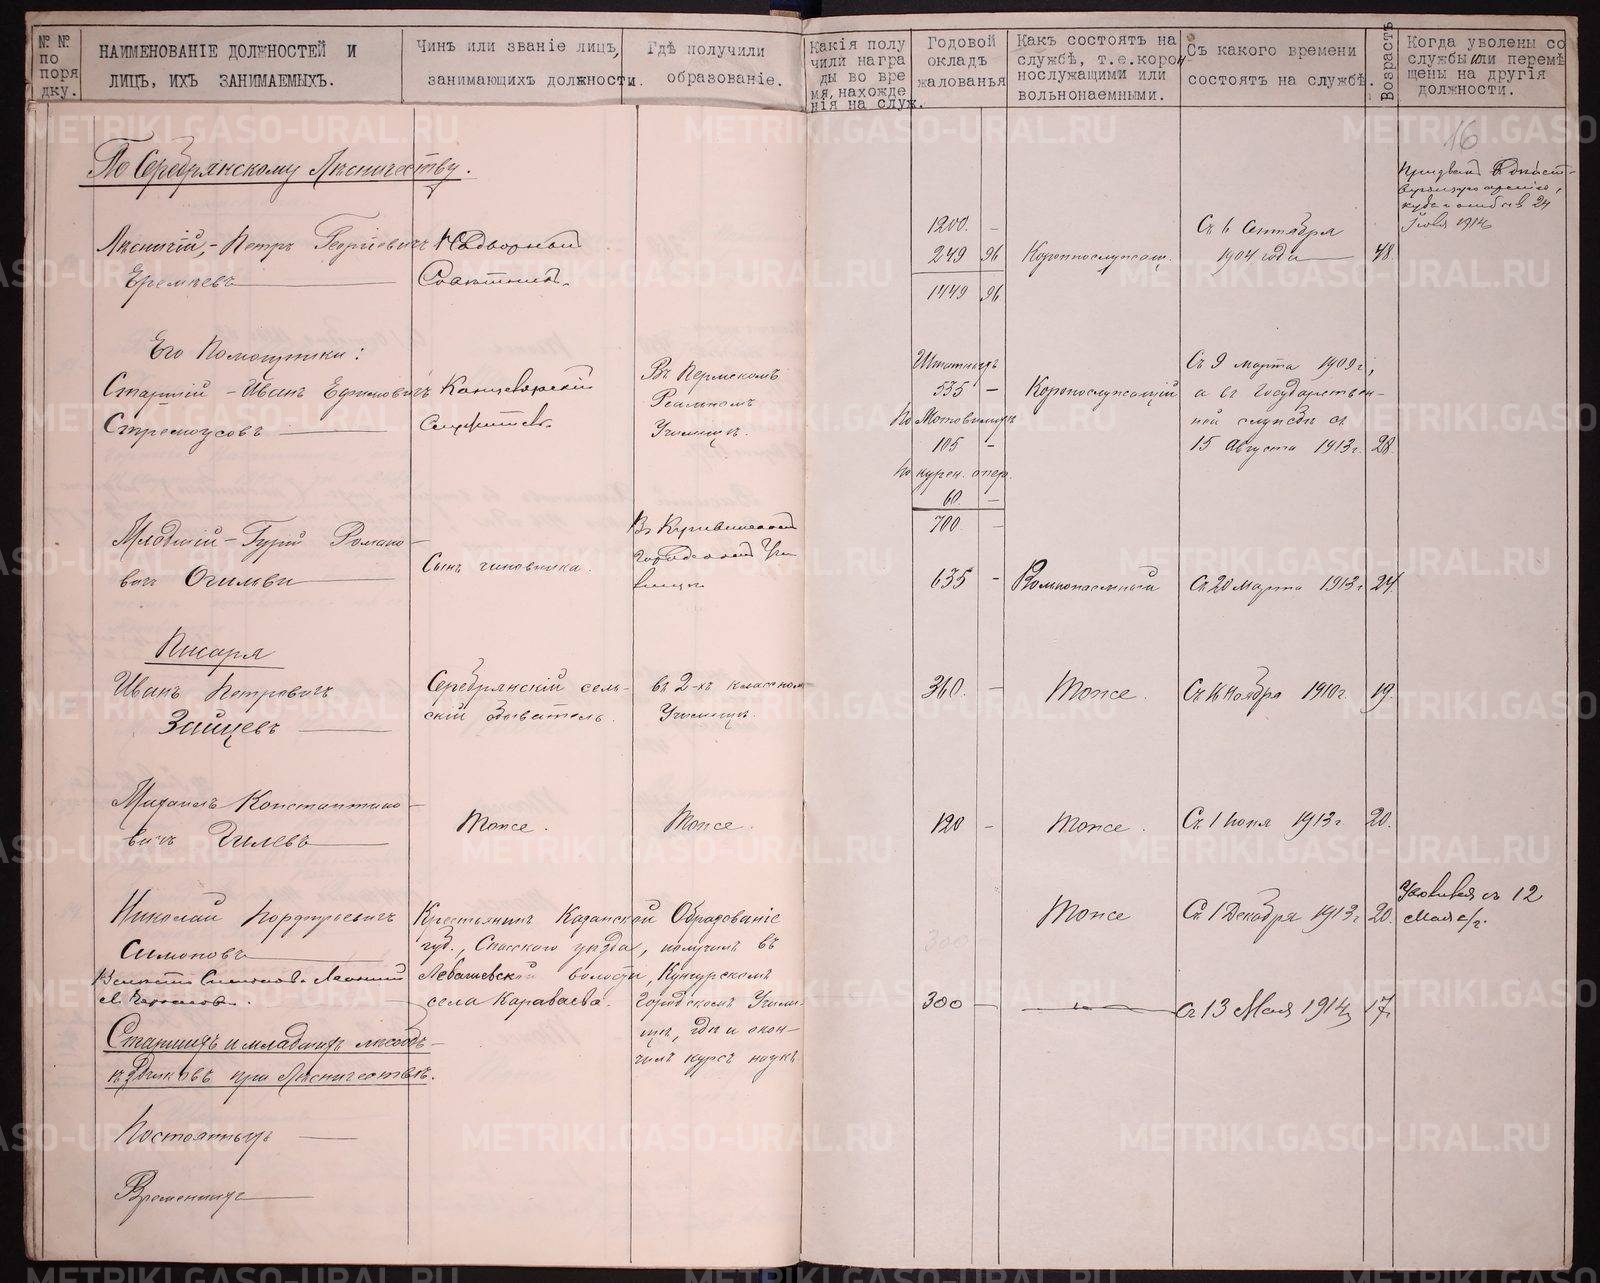 № № по поря дку.
НАИМЕНОВАНІЕ ДОЛЖНОСТЕЙ И
ЛИЦЪ, ИХЪ ЗАНИМАЕМЫХЪ.
Чинъ или званіе лицъ,
занимающихъ должности.
Гдѣ получили
образованіе.
Какія полу
чили награ
ды во вре
мя, нахожде
нія на служ.
Годовой
окладъ
жалованья
Какъ состоятъ на
службѣ, т.е. корон
нослужащими или
вольнонаемными.
Съ какого времени
состоятъ на службѣ.
Возрастъ
Когда уволены со
службы или перемѣ
щены на другія
должности.
16
По Серебрянскому Лѣсничеству.
Призванъ
24
Іюля 1914
Лѣсничій, - Петръ Георгіевичъ
Еремѣевъ
Надворный
Совѣтникъ.
1200. -
249 96
1449 96
Короннослужащ.
Съ 6 Сентября
1904 года
48.
Его Помощники:
Старшій - Иванъ Ефимовичъ
Стремоусовъ
Канцелярскій
Служитель.
Въ Пермскомъ
Реальномъ
Училищѣ.
Штатныхъ
535 -
По Мотовилихѣ
105 -
По курен. опер.
60 -
700 -
Коронослужащій
Съ 9 марта 1909 г.,
а въ Государствен-
ной службѣ съ
15 Августа 1913 г.
28.
Младшій - Гурій Романо-
вичъ Огильви
Сынъ чиновника.
Въ Кушвинскомъ
городскомъ Учи-
лищѣ
635 -
Вольнонаемный
Съ 20 Марта 1913 г.
24.
Писаря
Иванъ Петровичъ
Зайцевъ
Серебрянскій сель-
скій обыватель.
въ 2-хъ классном
Училищѣ.
360. -
Тоже.
Съ 16 Ноября 1910 г.
19.
Михаилъ Константино-
вичъ Гилевъ
Тоже.
Тоже.
120 -
Тоже.
Съ 1 Іюня 1913 г.
20.
Николай Порфирьевичъ
Симоновъ
Крестьянинъ Казанской
губ., Спасского уѣзда,
Левашевской волости,
села Караваева.
Образованіе
получилъ въ
Кунгурскомъ
городскомъ Учили-
щѣ, гдѣ и окон-
чилъ курсъ наукъ
300
Тоже
Съ 1 Декабря 1913 г.
20.
Уволенъ съ 12
Мая с/г.
Вмѣсто Симонова Леонид
300 -
съ 13 Мая 1914
17
Старшихъ и младшихъ лѣсообъ-
ѣздчиковъ при Лѣсничествѣ.
Постоянныхъ
Временныхъ
METRIKI.GASO-URAL.RU